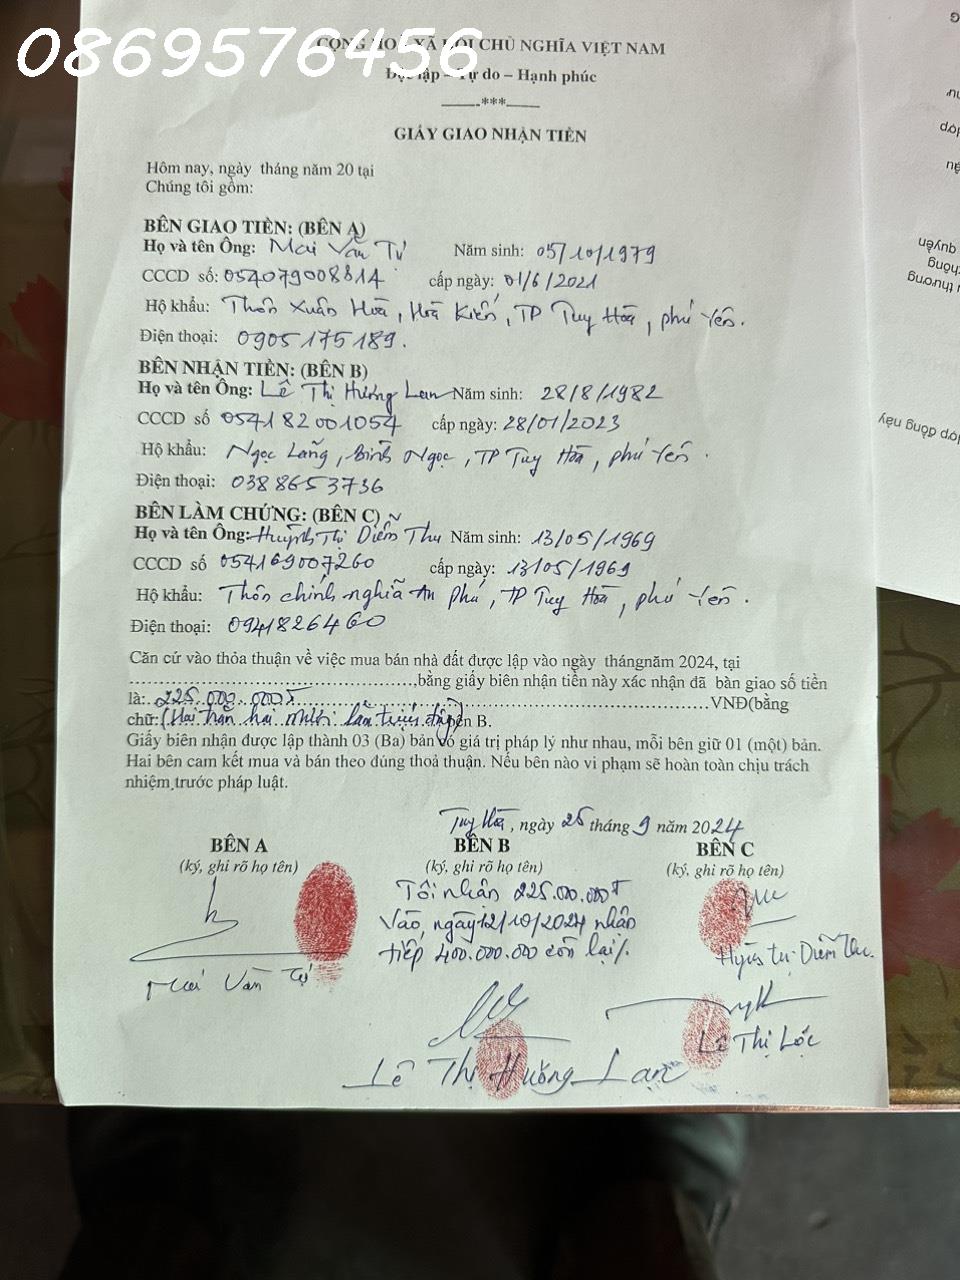 0869576456
CỘNG HOÀ XÃ HỘI CHỦ NGHĨA VIỆT NAM
Độc lập – Tự do – Hạnh phúc
——-***——
GIẤY GIAO NHẬN TIỀN
Hôm nay, ngày tháng năm 20 tại
Chúng tôi gồm:
BÊN GIAO TIỀN: (BÊN A)
Họ và tên Ông: Mai Văn Tự Năm sinh: 05/10/1979
CCCD số: 054079008814 cấp ngày: 01/6/2021
Hộ khẩu: Thôn Xuân Hoà, Hoà Kiến, TP Tuy Hoà, phú Yên.
Điện thoại: 0905175189.
BÊN NHẬN TIỀN: (BÊN B)
Họ và tên Ông: Lê Thị Hương Lan Năm sinh: 28/8/1982
CCCD số 054182001054 cấp ngày: 28/01/2023
Hộ khẩu: Ngọc Lãng, Bình Ngọc, TP Tuy Hoà, phú Yên.
Điện thoại: 0388653736
BÊN LÀM CHỨNG: (BÊN C)
Họ và tên Ông: Huỳnh Thị Diễm Thu Năm sinh: 13/05/1969
CCCD số 054169007260 cấp ngày: 13/05/1969
Hộ khẩu: Thôn chính nghĩa An Phú, TP Tuy Hoà, phú Yên.
Điện thoại: 0941826460
Căn cứ vào thỏa thuận về việc mua bán nhà đất được lập vào ngày thángnăm 2024, tại
..............................................,bằng giấy biên nhận tiền này xác nhận đã bàn giao số tiền
là: 225.000.000đ..........................................VNĐ(bằng
chữ:(Hai trăm hai mươi lăm triệu đồng) B.
Giấy biên nhận được lập thành 03 (Ba) bản có giá trị pháp lý như nhau, mỗi bên giữ 01 (một) bản.
Hai bên cam kết mua và bán theo đúng thoả thuận. Nếu bên nào vi phạm sẽ hoàn toàn chịu trách
nhiệm trước pháp luật.
Tuy Hoà, ngày 25 tháng 9 năm 2024
BÊN A BÊN B BÊN C
(ký, ghi rõ họ tên) (ký, ghi rõ họ tên) (ký, ghi rõ họ tên)
Tôi nhận 225.000.000đ
Vào, ngày 12/10/2024 nhận
tiếp 400.000.000 còn lại/.
Mai Văn Tự
Huỳnh Thị Diễm Thu.
Lê Thị Lộc
Lê Thị Hương Lan
quyền
không
thương
hợp đồng này